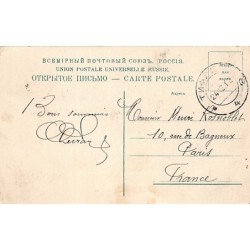 ВСЕМІРНЫЙ ПОЧТОВЫЙ СОЮЗЪ. РОССІЯ.
UNION POSTALE UNIVERSELLE RUSSIE.
ОТКРЫТОЕ ПИСЬМО — CARTE POSTALE
Bons souvenirs
Monsieur Henri
10, rue de Bagneux
Paris
France